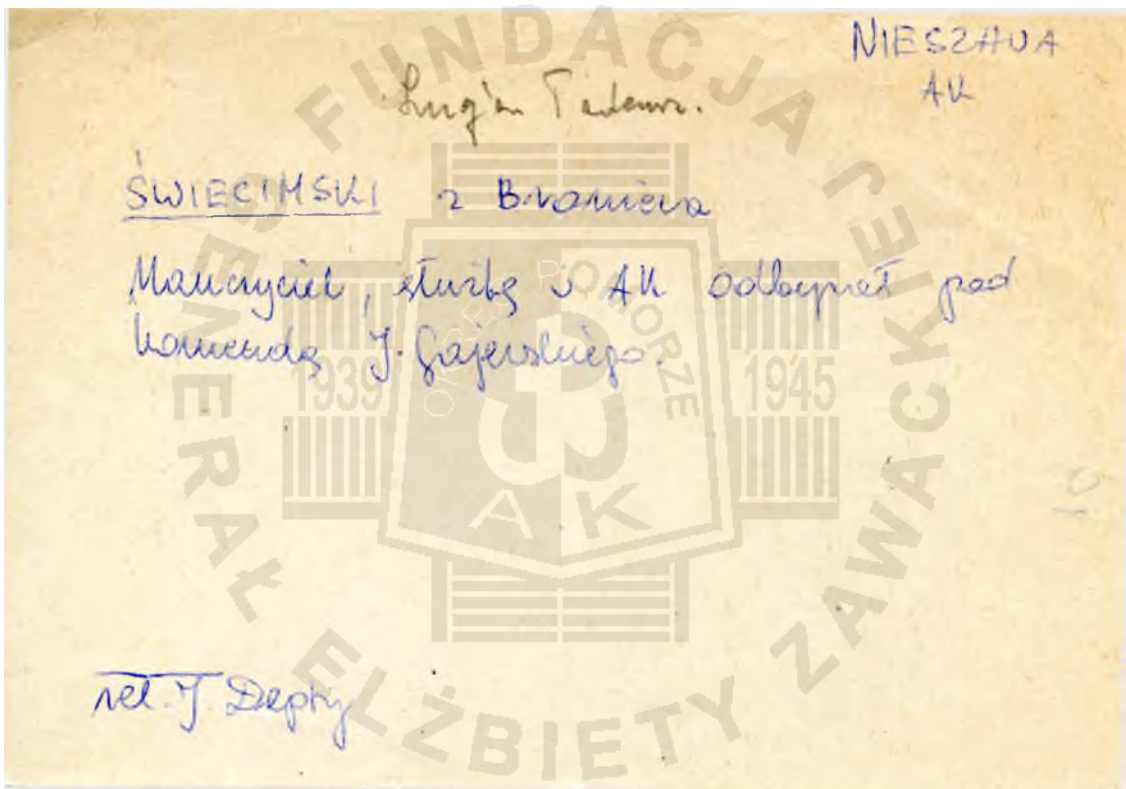 NIESZAWA
AK
Tadeusz.
ŚWIECIMSKI z Broniewa
Nauczyciel, służbę w AK odbywał pod
komendą J. Gajewskiego.
rel. J. Depty
FUNDACJA GENERAŁ ELŻBIETY ZAWACKIEJ
OKRĘG POMORZE
1939 1945
AK